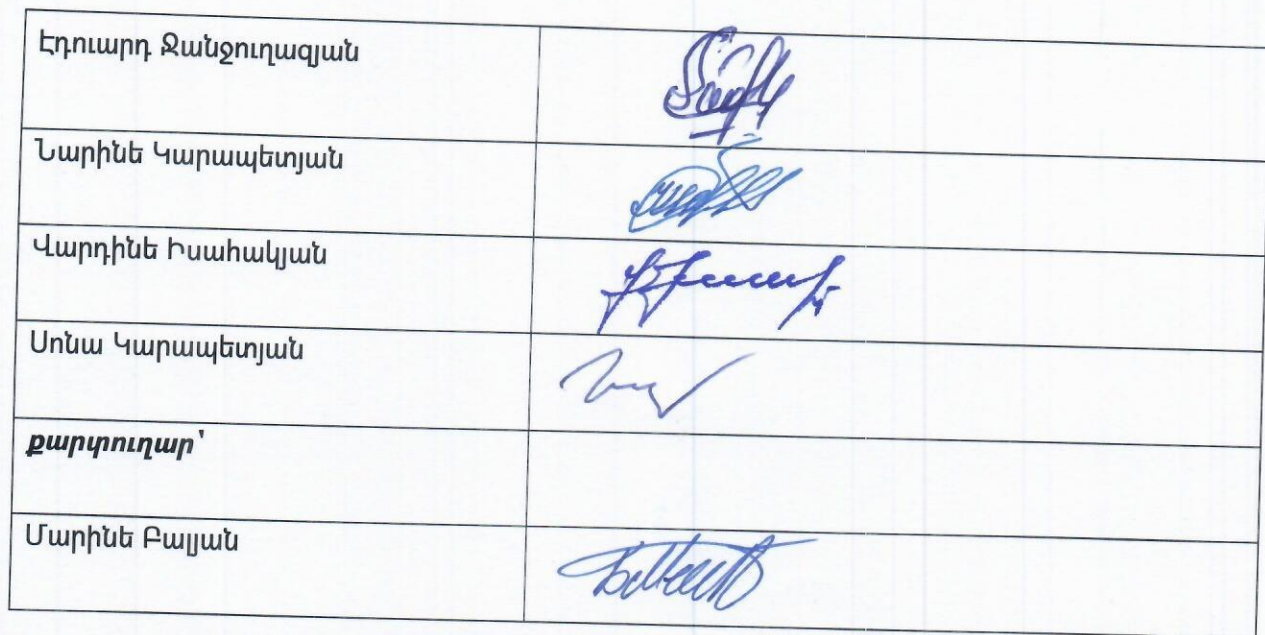 Էդուարդ Ջանջուղազյան
Նարինե Կարապետյան
Վարդինե Իսահակյան
Սոնա Կարապետյան
քարտուղար՝
Մարինե Բալյան